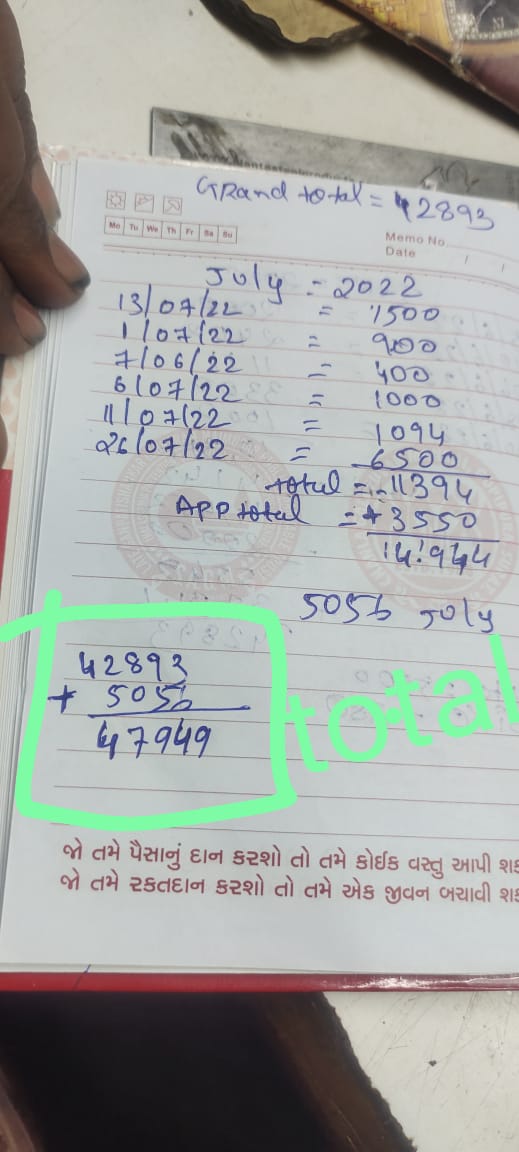 Grand total = 42893
Mo Tu We Th Fr Sa Su
Memo No.
Date / /
July = 2022
13/07/22 = 1500
1/07/22 = 900
7/06/22 = 400
6/07/22 = 1000
11/07/22 = 1094
26/07/22 = 6500
total = 11394
APP total = + 3550
14944
5056 July
42893
+ 5056
47949
total
જો તમે પૈસાનું દાન કરશો તો તમે કોઈક વસ્તુ આપી
જો તમે રક્તદાન કરશો તો તમે એક જીવન બચાવી